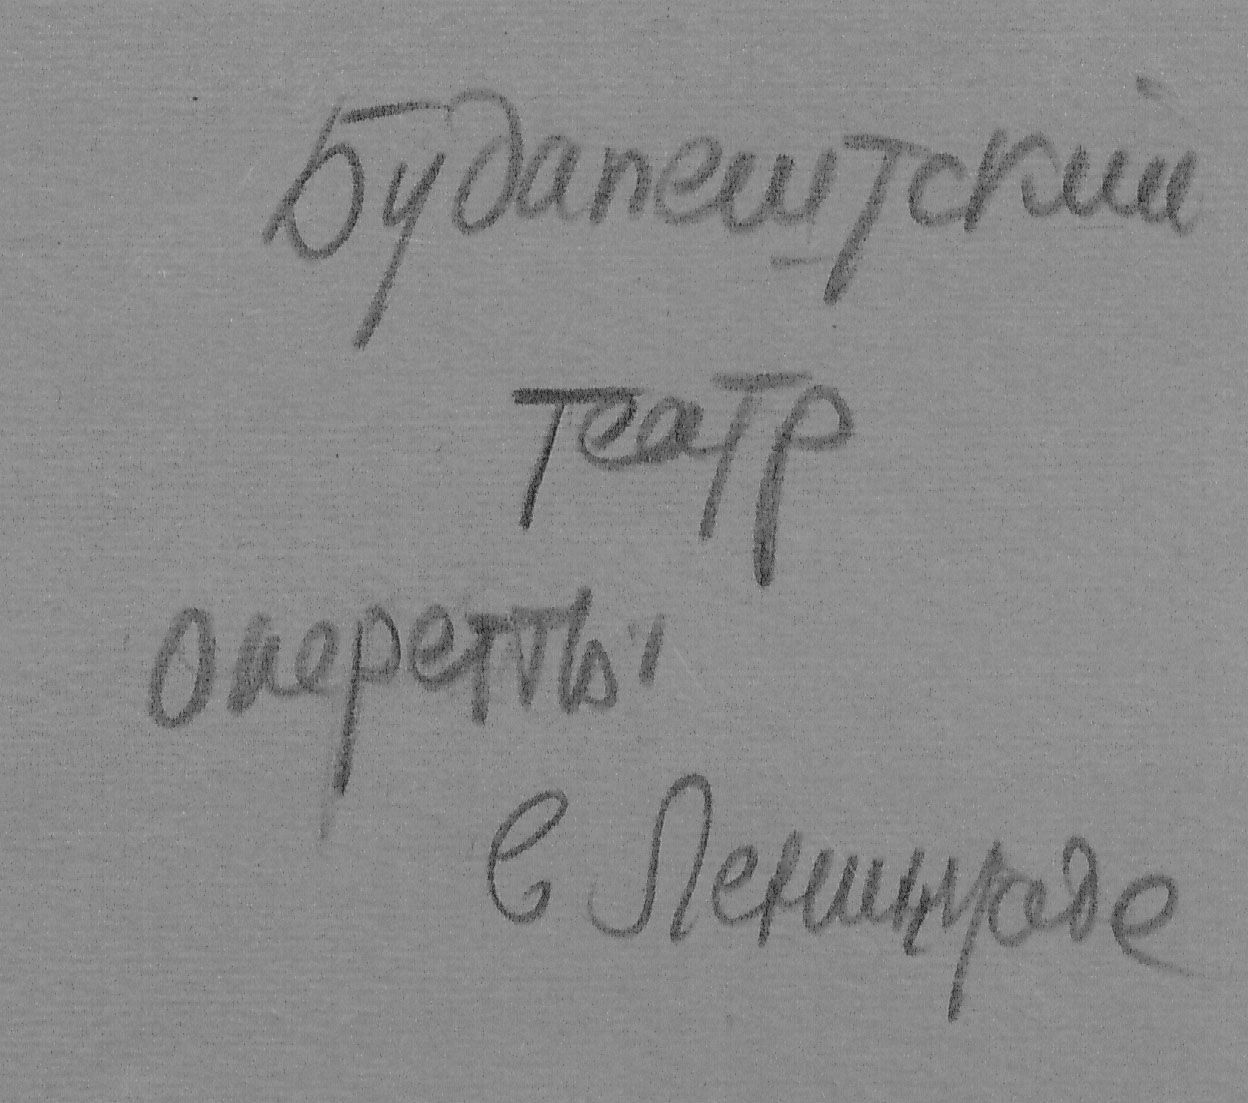 Будапештский
театр
оперетты
в Ленинграде